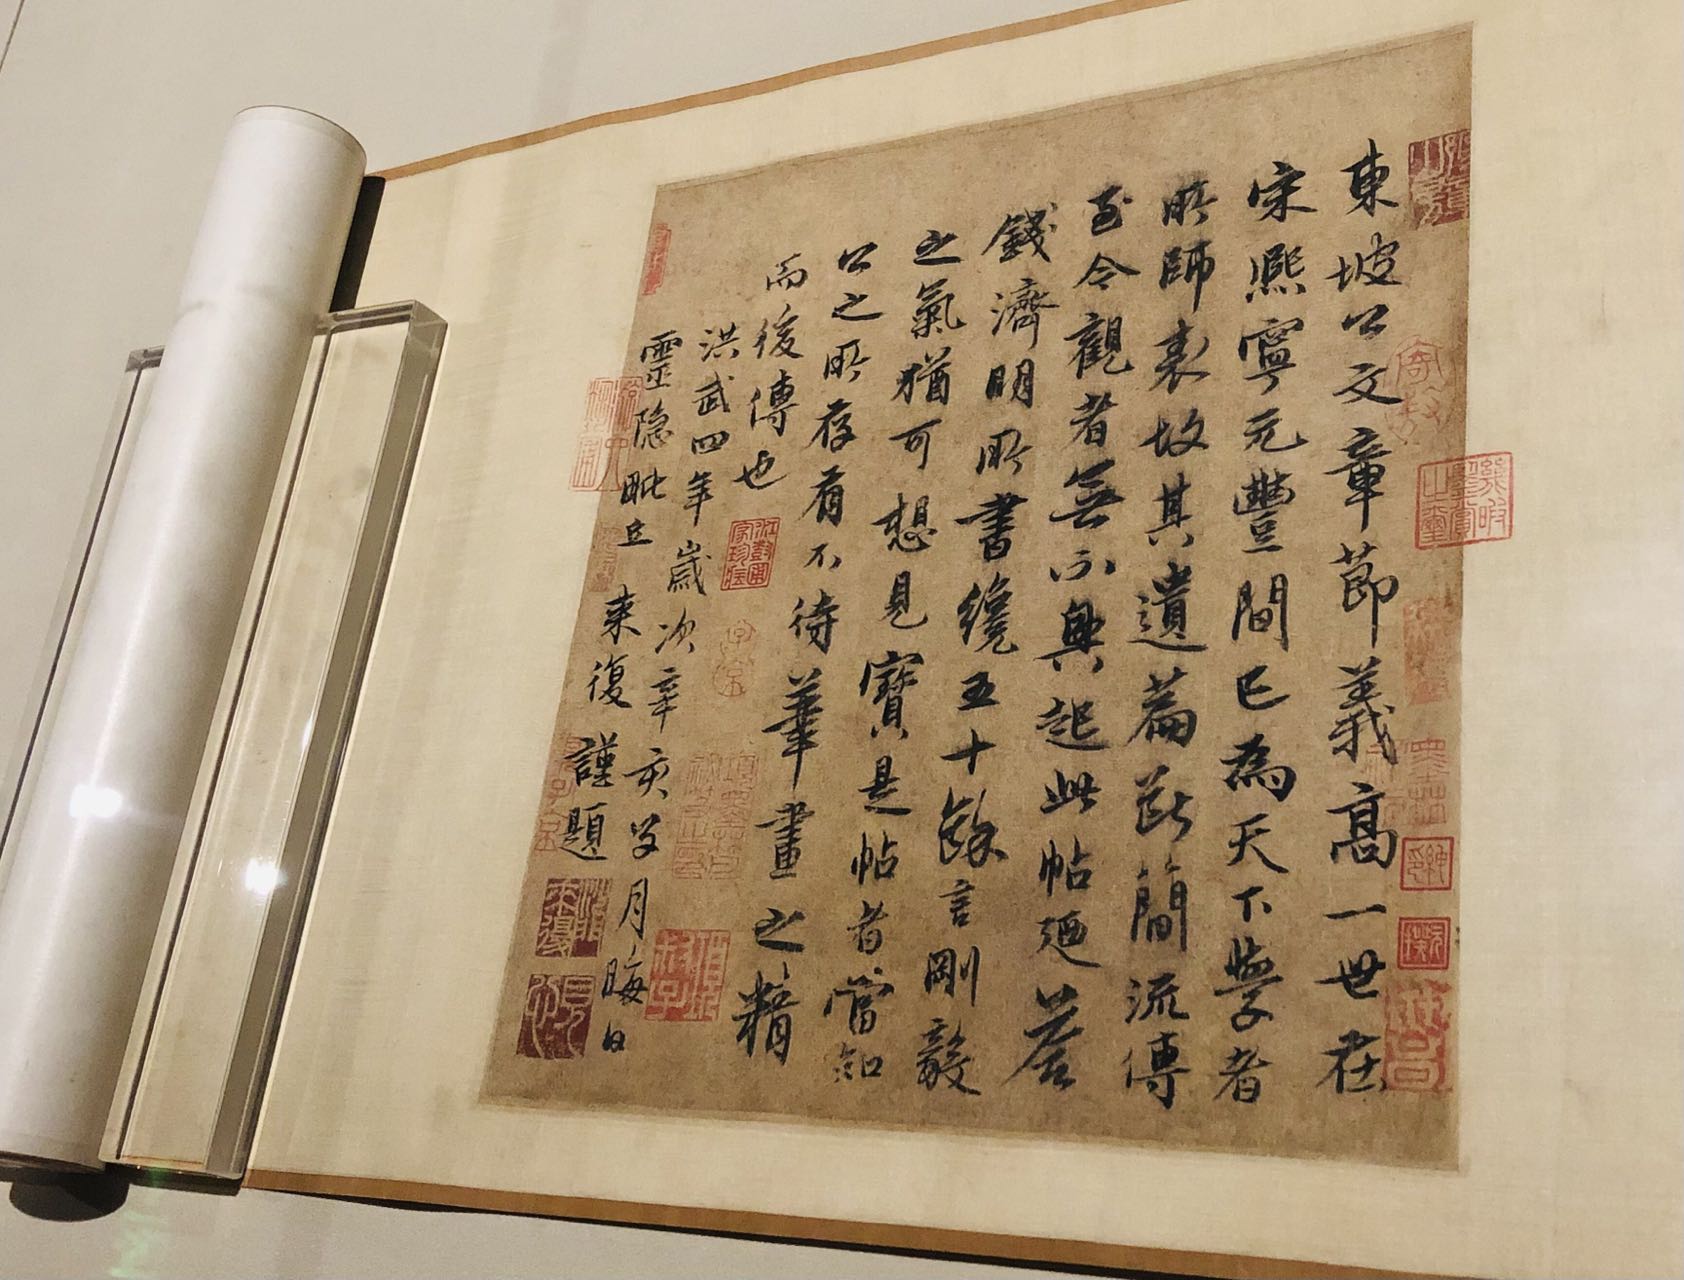 東坡公文章節義高一世在
宋熙寧元豐間已為天下學者
所師表故其遺篇斷簡流傳
至今觀者無不興起此帖廼答
錢濟明所書纔五十餘言剛毅
之氣猶可想見寶是帖者當知
公之所存有不待筆畫之精
而後傳也
洪武四年歲次辛亥四月晦日
靈隱毗丘來復謹題